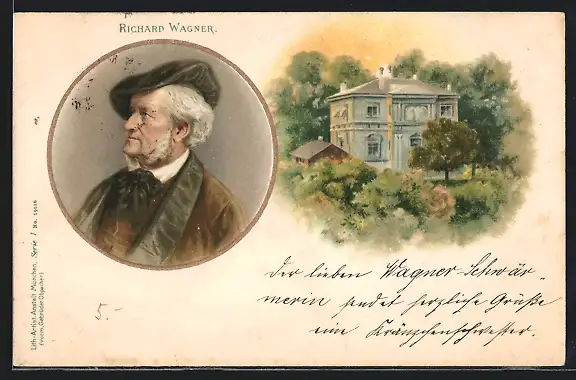 RICHARD WAGNER.
Der lieben Wagner-Schwär„
merin sendet herzliche Grüße
eine Kränzchenschwester.
5.-
Lith.-Artist. Anstalt, München, Serie I No. 19116
(vorm. Gebrüder Obpacher)